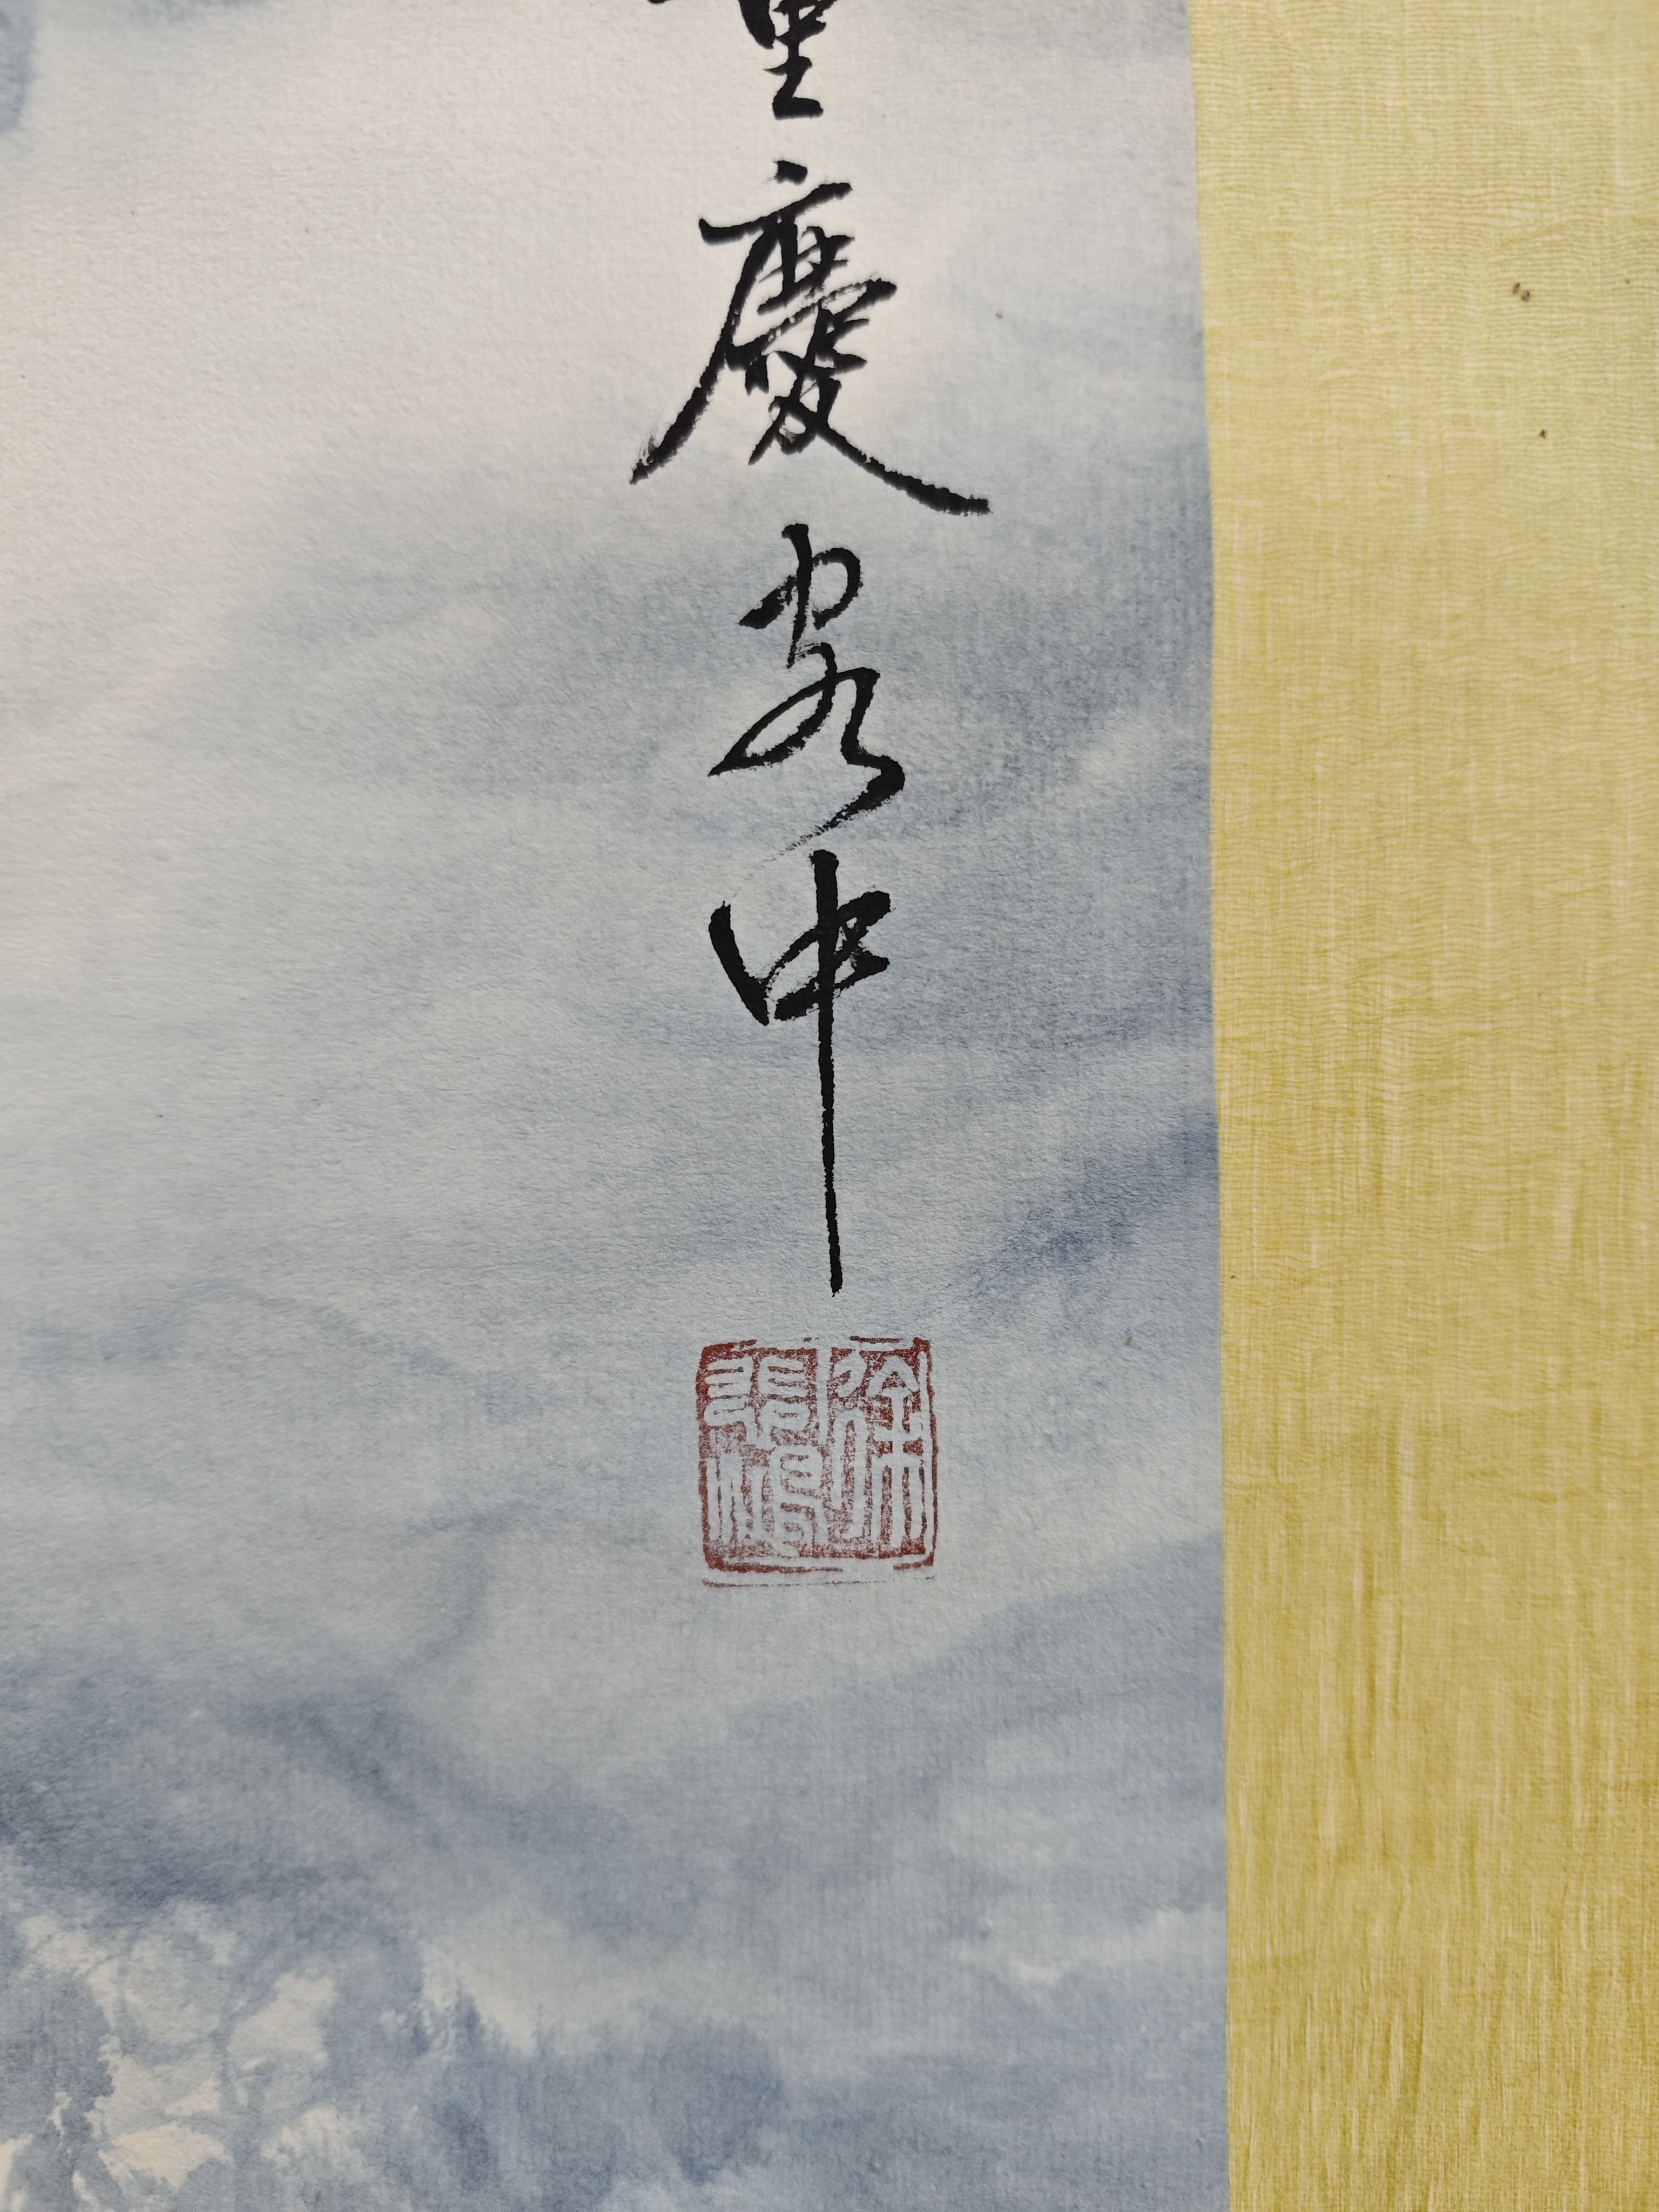 重慶客中
徐悲鴻